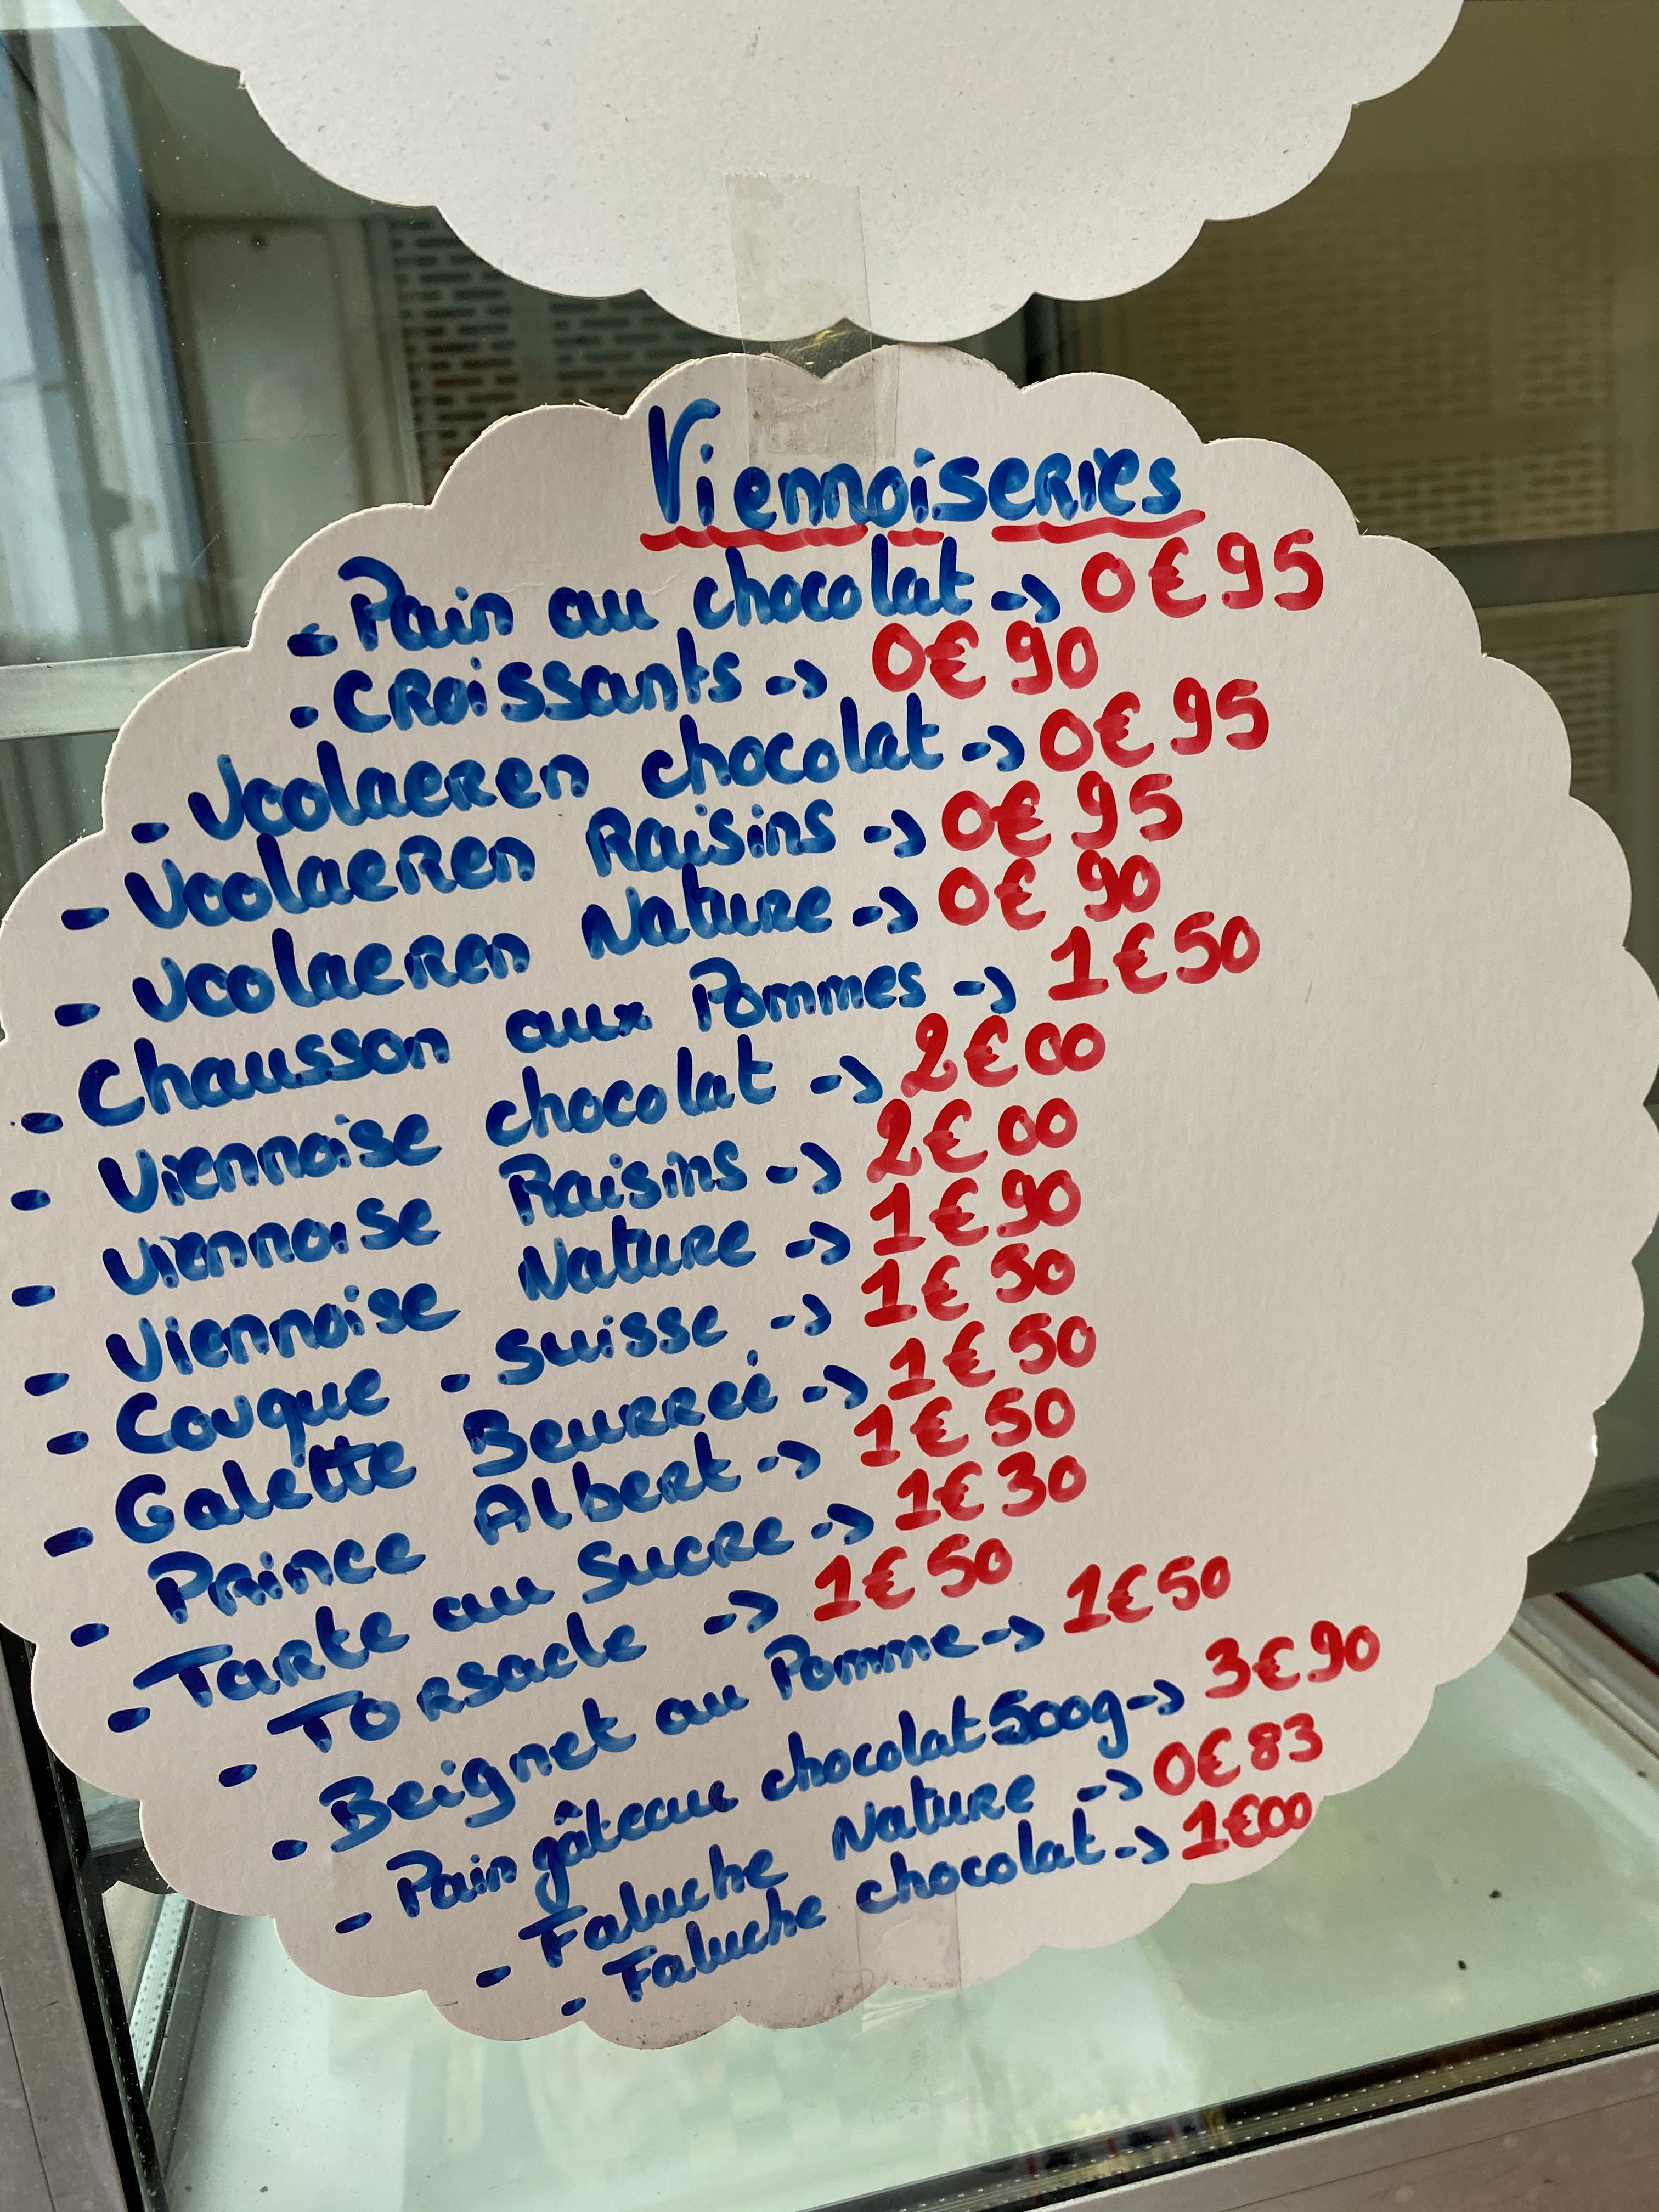 Viennoiseries
- Pain au chocolat -> 0€95
- Croissants -> 0€90
- Voolaeren chocolat -> 0€95
- Voolaeren Raisins -> 0€95
- Voolaeren Nature -> 0€90
- Chausson aux Pommes -> 1€50
- Viennoise chocolat -> 2€00
- Viennoise Raisins -> 2€00
- Viennoise Nature -> 1€90
- Couque - suisse -> 1€50
- Galette Beurreé -> 1€50
- Prince Albert -> 1€50
- Tarte au Sucre -> 1€30
- Torsade -> 1€50
- Beignet au Pomme -> 1€50
- Pain gâteau chocolat 500g -> 3€90
- Faluche Nature -> 0€83
- Faluche chocolat -> 1€00